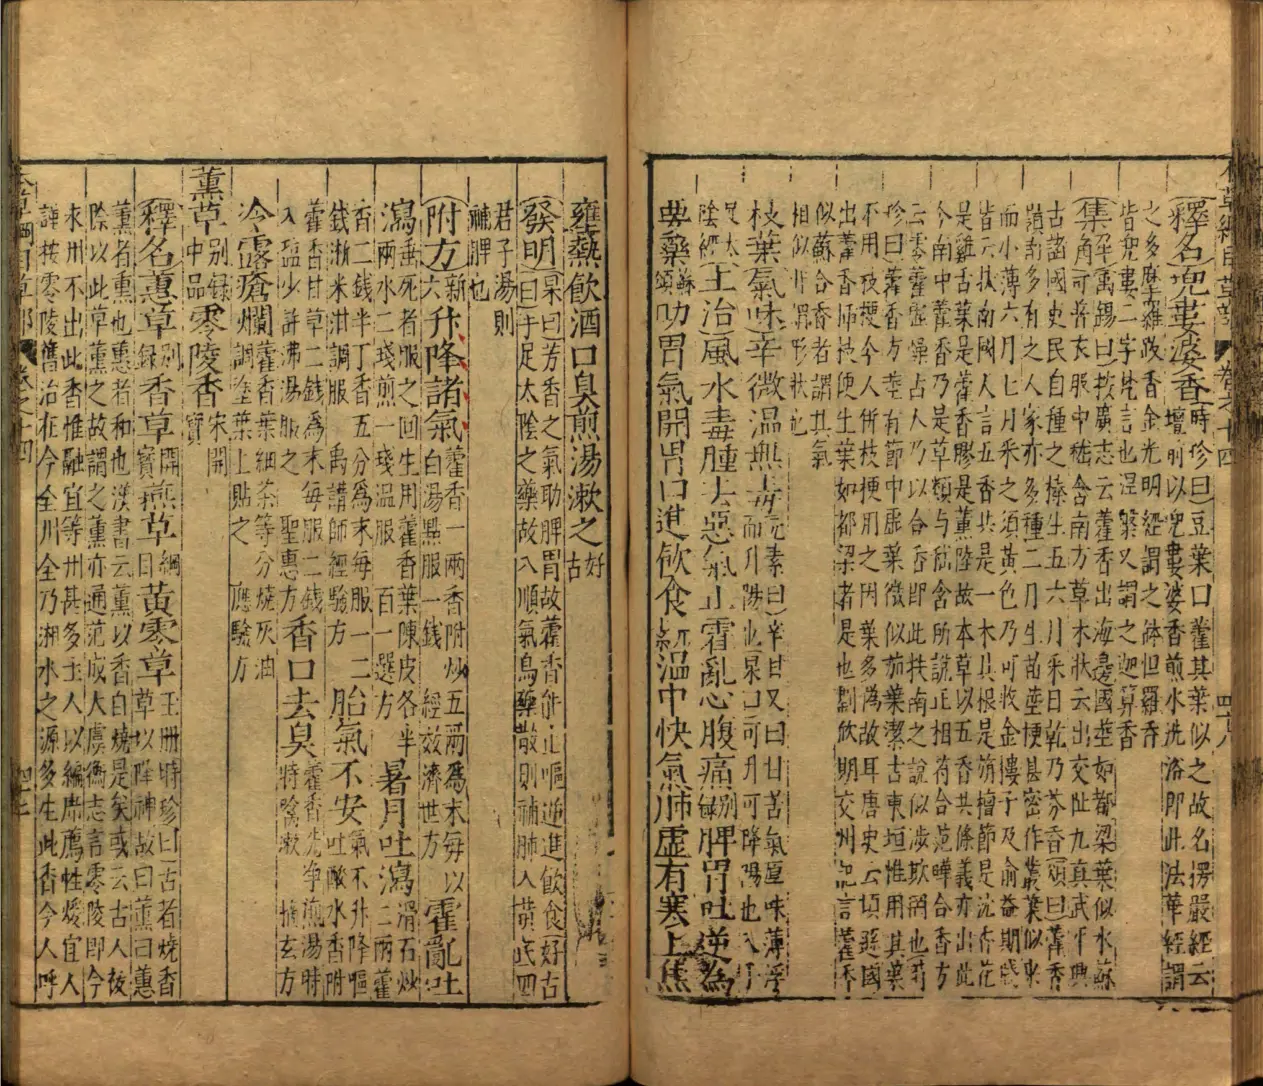 本草綱目草部 卷之十四 四十八
釋名兜婁婆香時珍曰豆葉曰藿其葉似之故名楞嚴經云
壇前以兜婁婆香煎水洗浴即此法華經謂
之多摩羅跋香金光明經謂之鉢怛羅香
皆兜婁二字梵言也涅槃又謂之迦算香
集解禹錫曰按廣志云藿香出海邊國莖如都梁葉似水蘇
可着衣服中嵇含南方草木狀云出交阯九真武平興
古諸國吏民自種之榛生五六月采日乾乃芬香頌曰藿香
嶺南多有之人家亦多種二月生苗莖梗甚密作叢葉似桑
而小薄六月七月采之須黃色乃可收金樓子及俞益期牋
皆云扶南國人言五香共是一木其根是旃檀節是沈香花
是雞舌葉是藿香膠是薰陸故本草以五香共條義亦出此
今南中藿香乃是草類與嵇含所說正相符合范曄合香方
云零藿虛燥古人乃以合香即此扶南之說似涉欺罔也時
珍曰藿香方莖有節中虛葉微似茄葉潔古東垣惟用其葉
不用枝梗今人併枝梗用之因葉多偽故耳唐史云頓遜國
出藿香插枝便生葉如都梁者是也劉欣期交州記言藿香
似蘇合香者謂其氣
相似非謂形狀也
枝葉氣味辛微溫無毒元素曰辛甘又曰甘苦氣厚味薄浮
而升陽也杲曰可升可降陽也入手
足太陰經主治風水毒腫去惡氣止霍亂心腹痛別錄脾胃吐逆為
要藥蘇頌助胃氣開胃口進飲食元素溫中快氣肺虛有寒上焦
壅熱飲酒口臭煎湯漱之好古
發明杲曰芳香之氣助脾胃故藿香能止嘔逆進飲食好古
曰手足太陰之藥故入順氣烏藥散則補肺入黃芪四
君子湯則
補脾也
附方新六升降諸氣藿香一兩香附炒五兩為末每以
白湯點服一錢 經效濟世方霍亂吐
瀉垂死者服之回生用藿香葉陳皮各半
兩水二琖煎一琖溫服 百一選方暑月吐瀉滑石炒二兩藿
香二錢半丁香五分為末每服一二
錢淅米泔調服 禹講師經驗方胎氣不安氣不升降嘔吐酸水香附
藿香甘草二錢為末每服二錢
入鹽少許沸湯服之 聖惠方香口去臭藿香洗淨煎湯時
時噙漱 摘玄方
冷露瘡爛藿香葉細茶等分燒灰油
調塗葉上貼之 應驗方
薰草別錄中品零陵香宋開寶
釋名蕙草別錄香草開寶燕草綱目黃零草王冊時珍曰古者燒香
草以降神故曰薰曰蕙
薰者熏也蕙者和也漢書云薰以香自燒是矣或云古人祓
除以此草薰之故謂之薰亦通范成大虞衡志言零陵即今
永州不出此香惟融宜等州甚多土人以編席薦性煖宜人
謹按零陵舊治在今全州全乃湘水之源多生此香今人呼
本草綱目草部 卷之十四